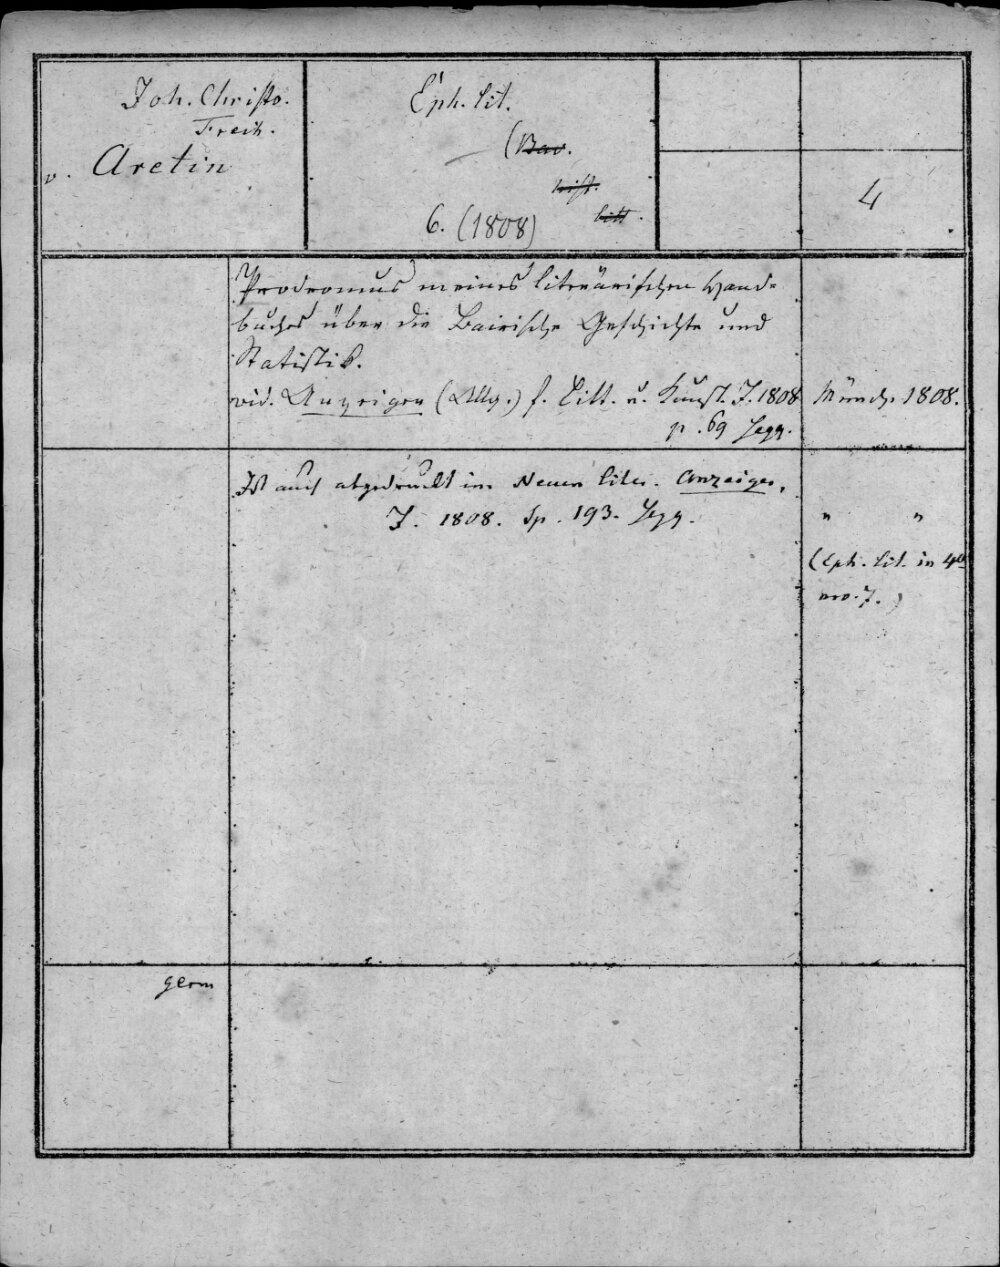 Joh. Christo.
Freih.
v. Aretin
Eph. lit.
(Bav.
hist.
litt.
6. (1808)
4
Prodromus meines literärischen Hand-
buches über die Bairische Geschichte und
Statistik.
vid. Anzeigen (Allg.) f. Litt. u. Kunst. J. 1808
p. 69 seqq.
Münch. 1808.
Ist auch abgedruckt im Neuen liter. Anzeiger.
J. 1808. Sp. 193. seqq.
" "
(Eph. lit. in 4to
nro. 7.)
germ